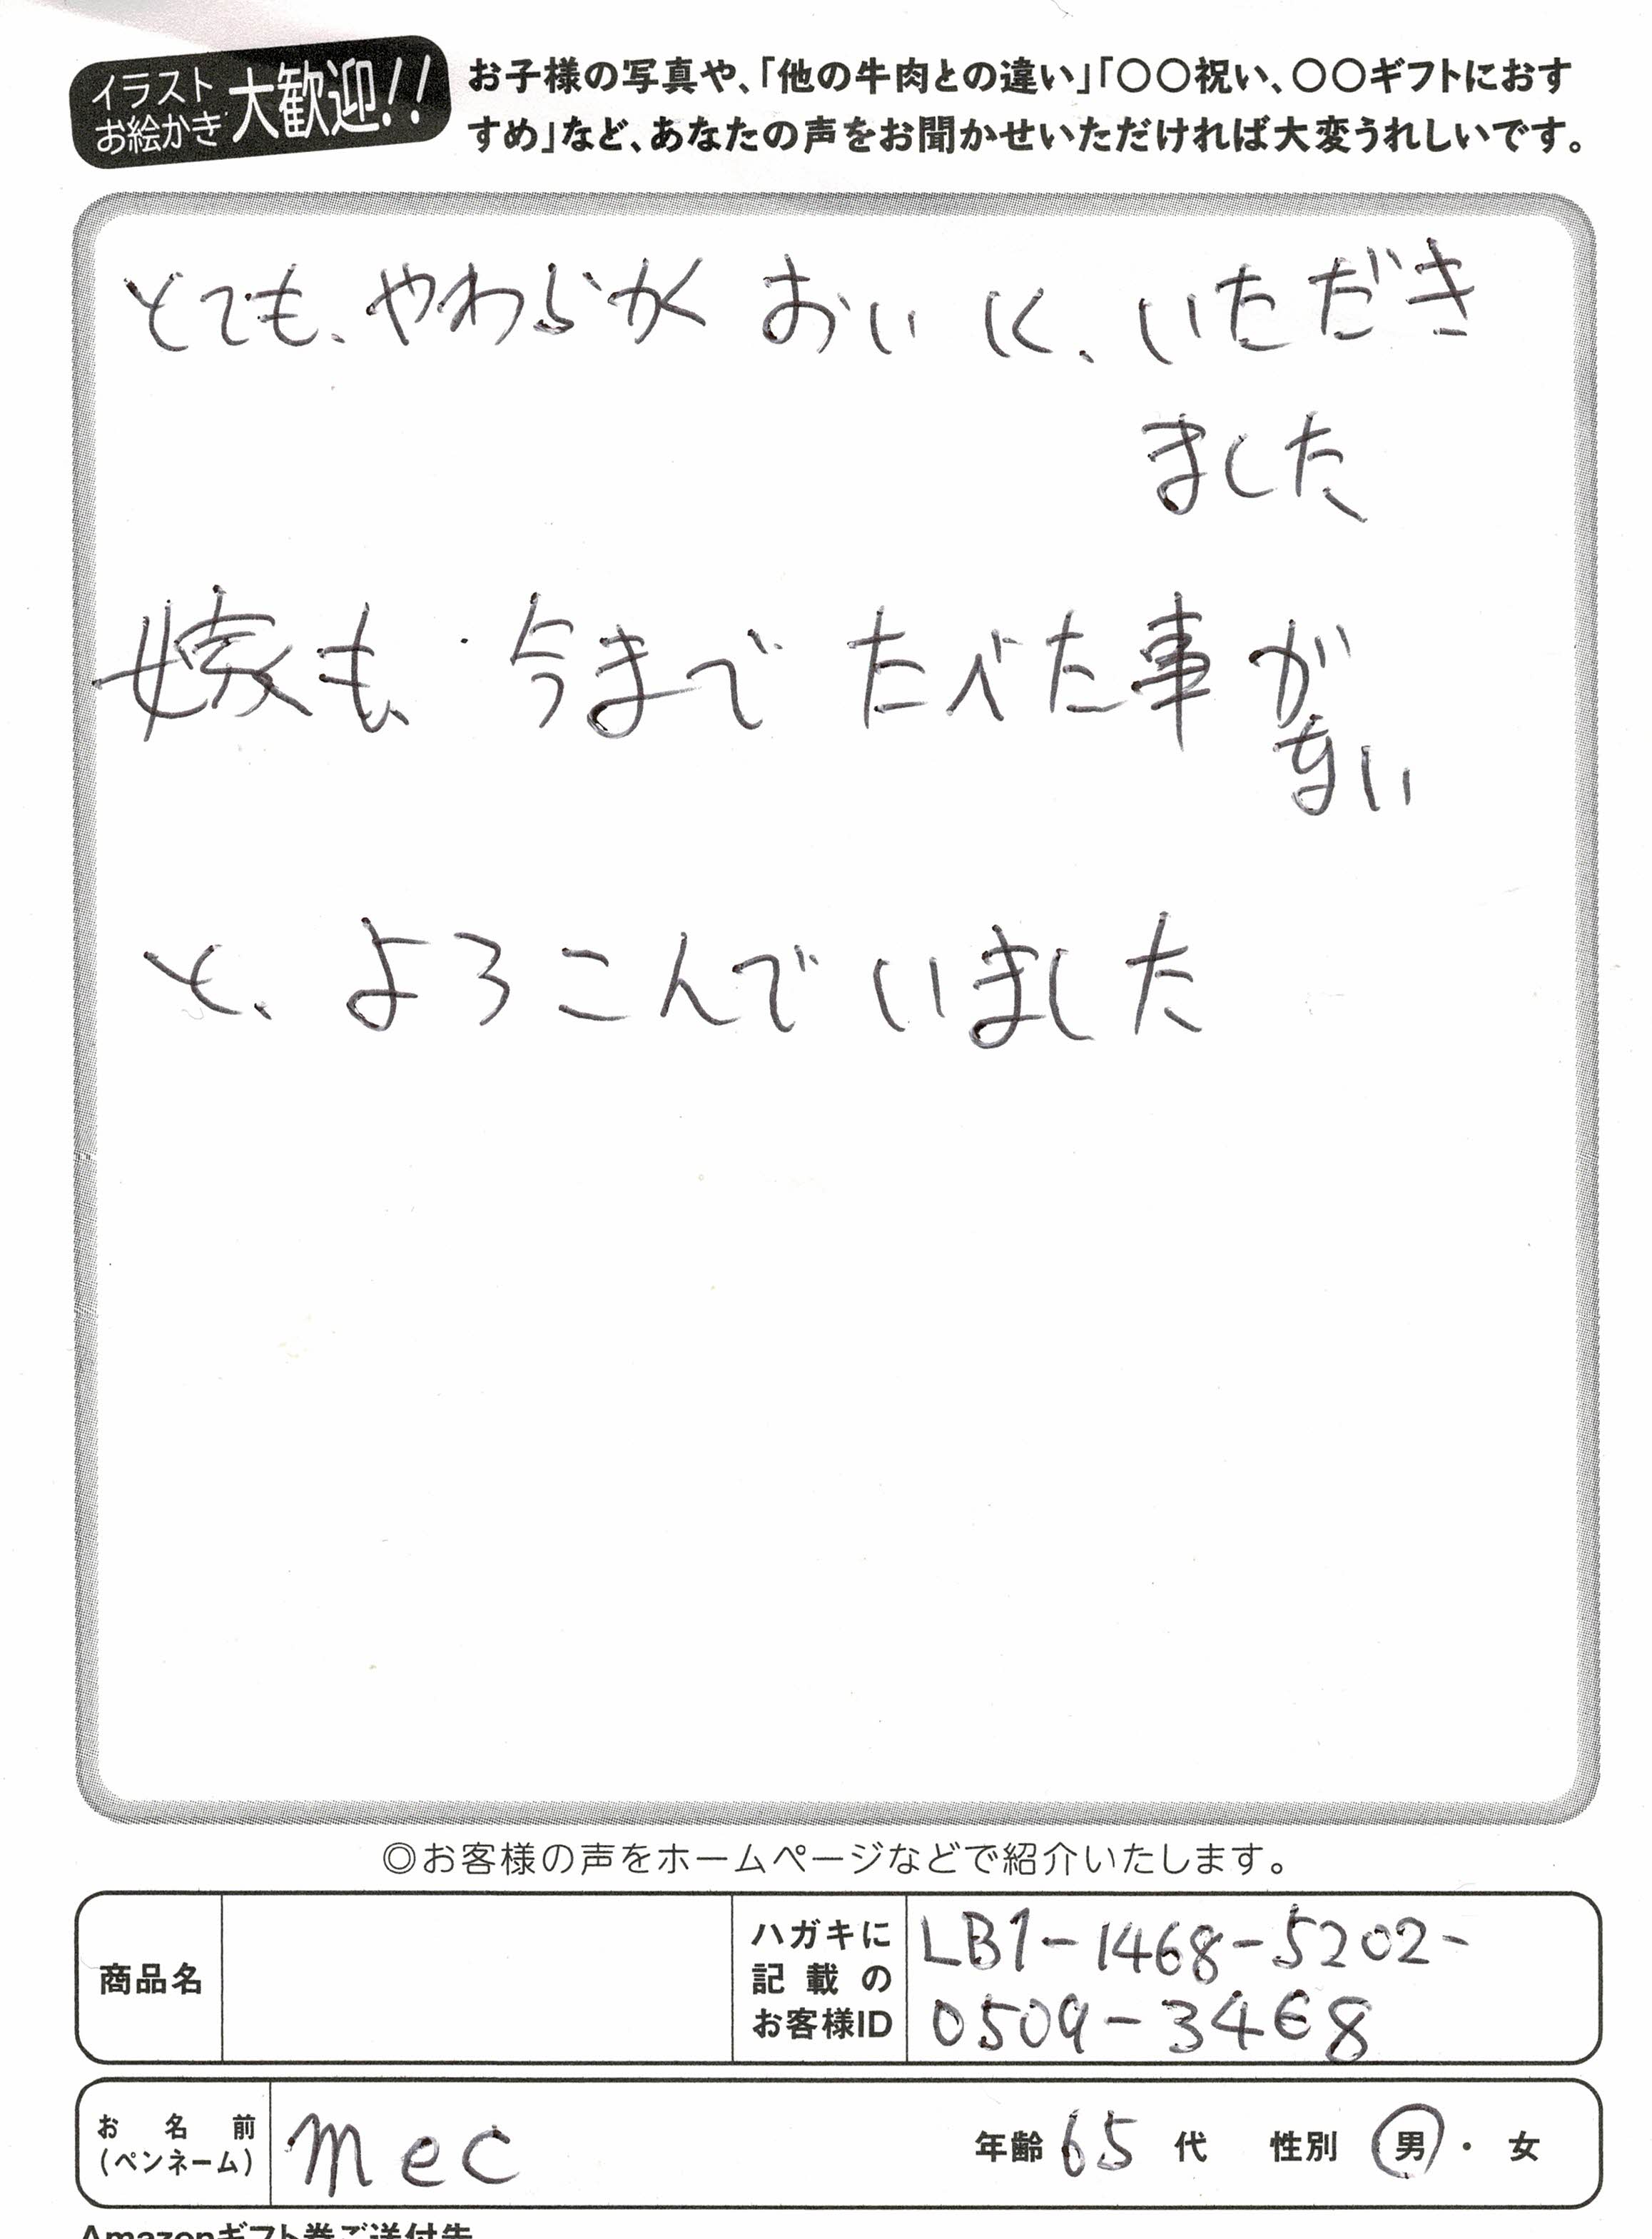 イラスト
お絵かき
大歓迎!!
お子様の写真や、「他の牛肉との違い」「〇〇祝い、〇〇ギフトにおす
すめ」など、あなたの声をお聞かせいただければ大変うれしいです。
とても、やわらかく おいしく、いただき
ました
嫁も、今まで たべた事が
ない
と、よろこんでいました
◎お客様の声をホームページなどで紹介いたします。
商品名
ハガキに
記載の
お客様ID
LB1-1468-5202-
0509-3468
お名前
(ペンネーム)
mec
年齢 65 代 性別 男・女
Amazonギフト券ご送付先